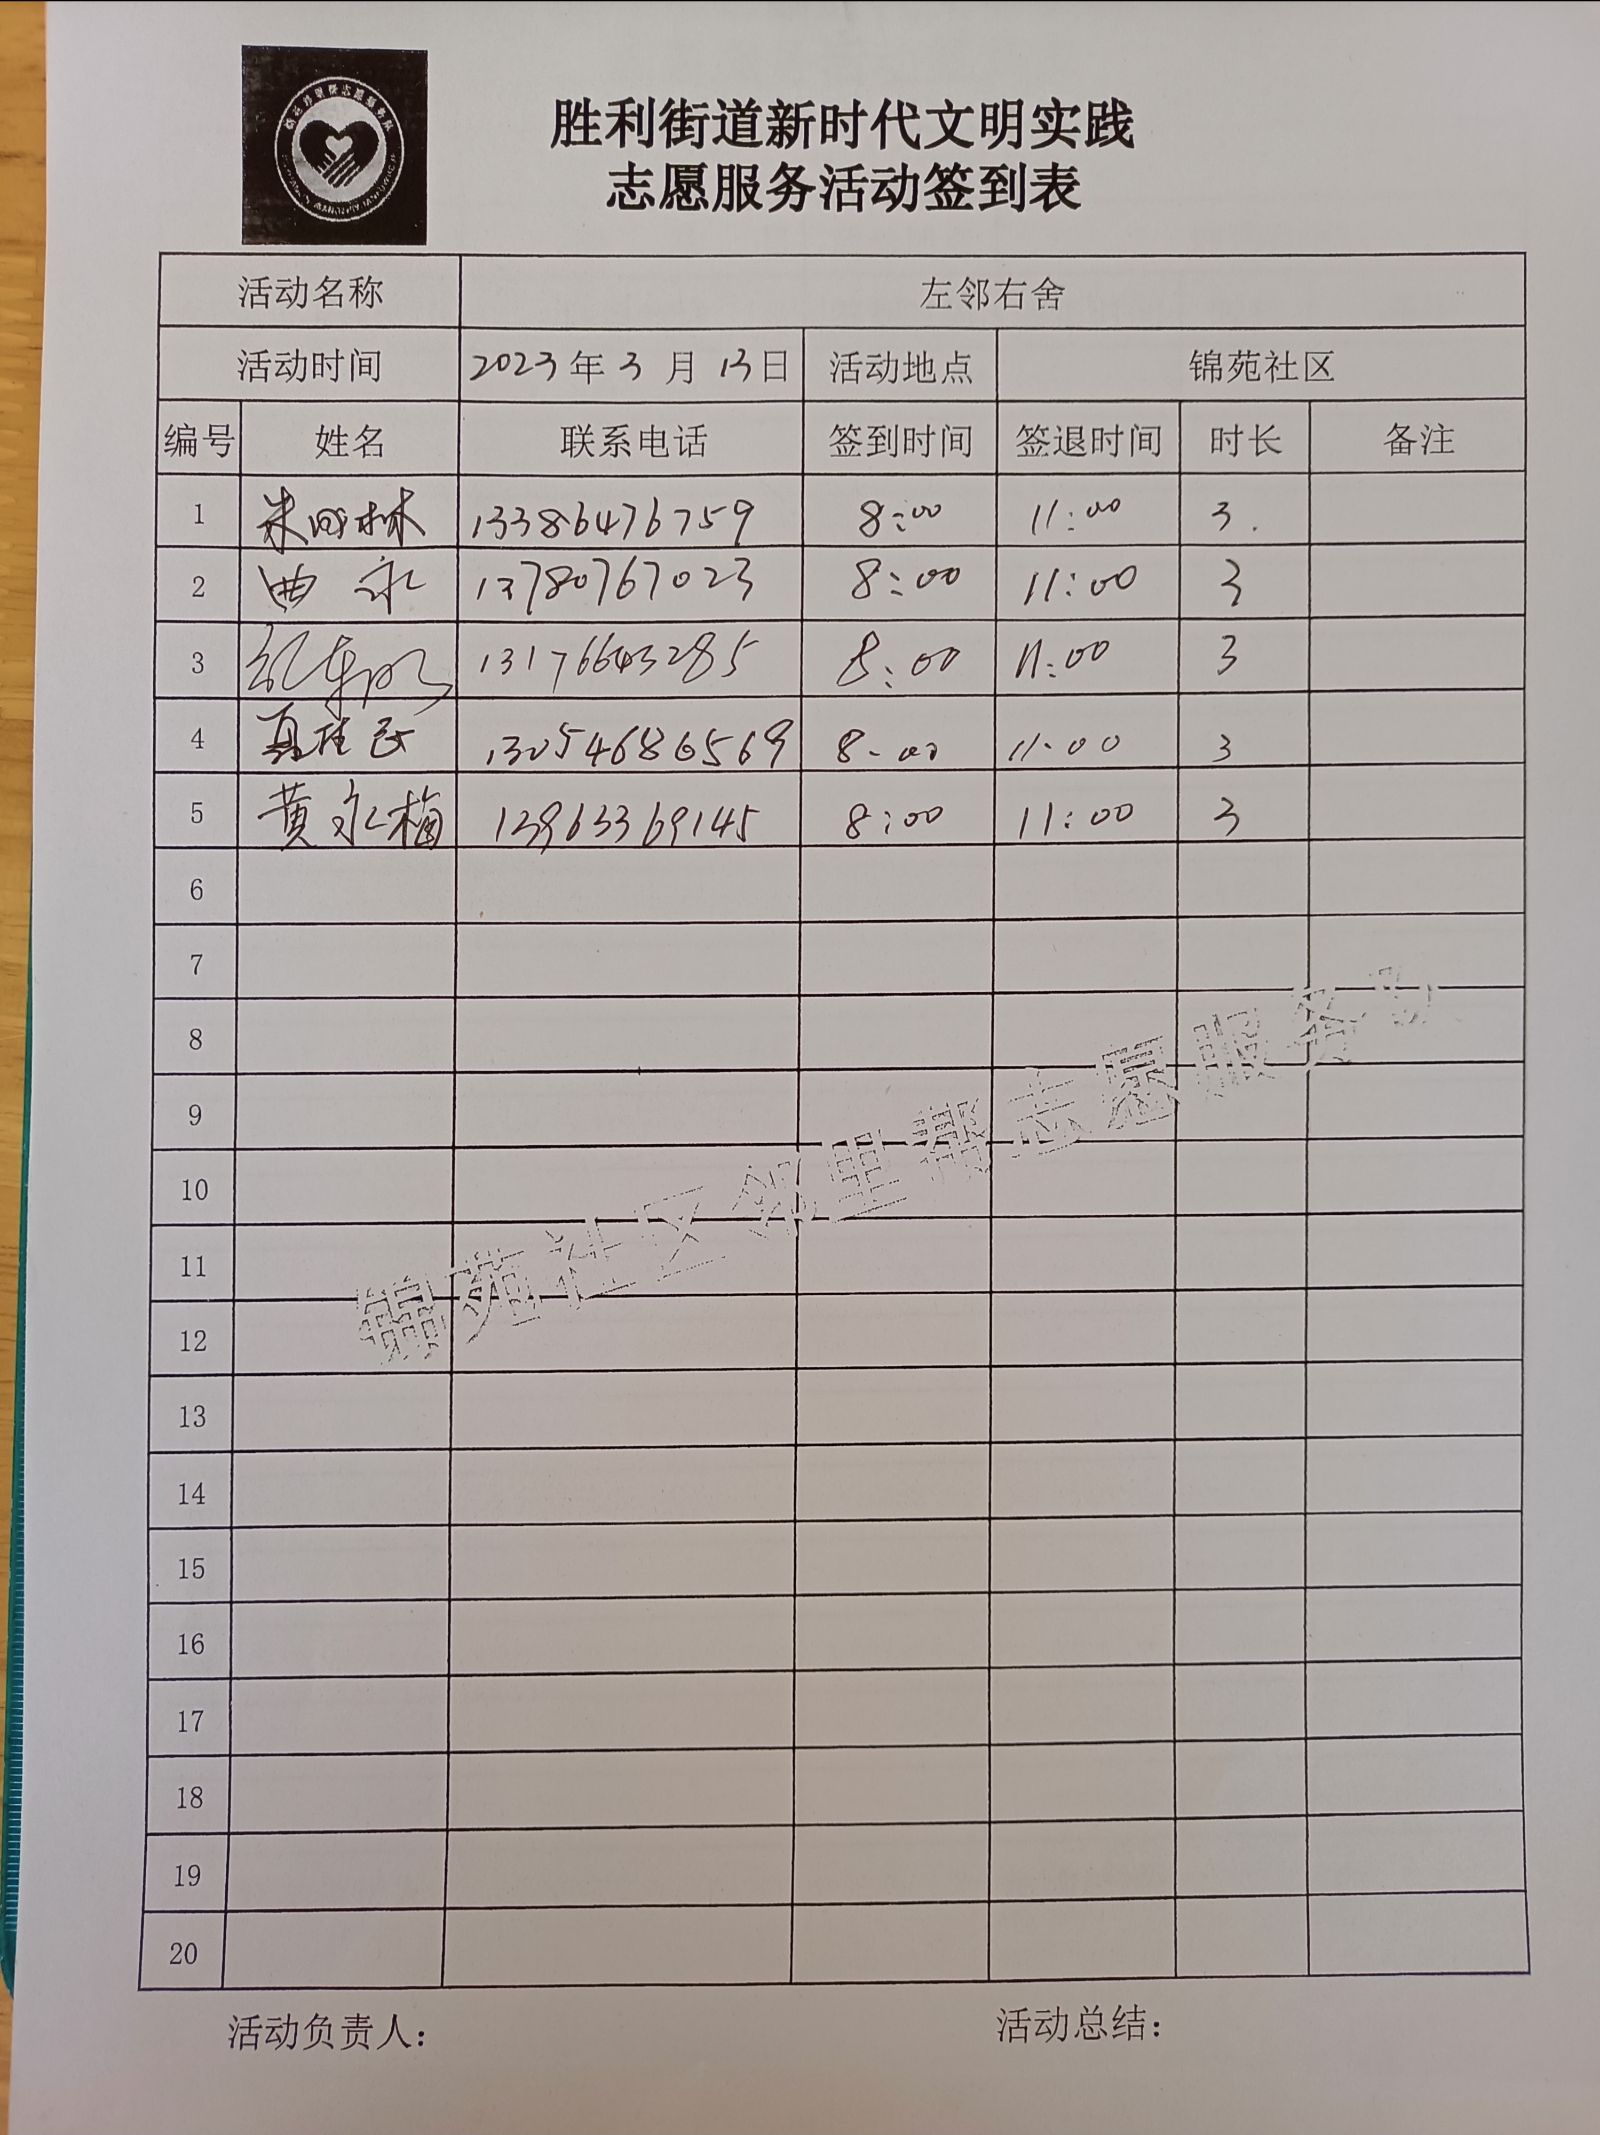 胜利街道新时代文明实践
志愿服务活动签到表
活动名称 左邻右舍
活动时间 2023年3月13日 活动地点 锦苑社区
编号 姓名 联系电话 签到时间 签退时间 时长 备注
1 13386476759 8:00 11:00 3.
2 曲永 13780767023 8:00 11:00 3
3 13176643285 8:00 11:00 3
4 13054686569 8:00 11:00 3
5 黄永梅 13963369145 8:00 11:00 3
6
7
8
9
10
11
12
13
14
15
16
17
18
19
20
锦苑社区邻里帮志愿服务
活动负责人： 活动总结：